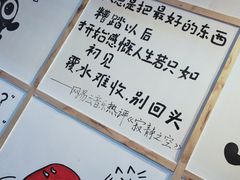 总是把最好的东西
糟踏以后
才开始感慨人生若只如
初见
覆水难收,别回头
——网易云音乐热评《寂静之空》